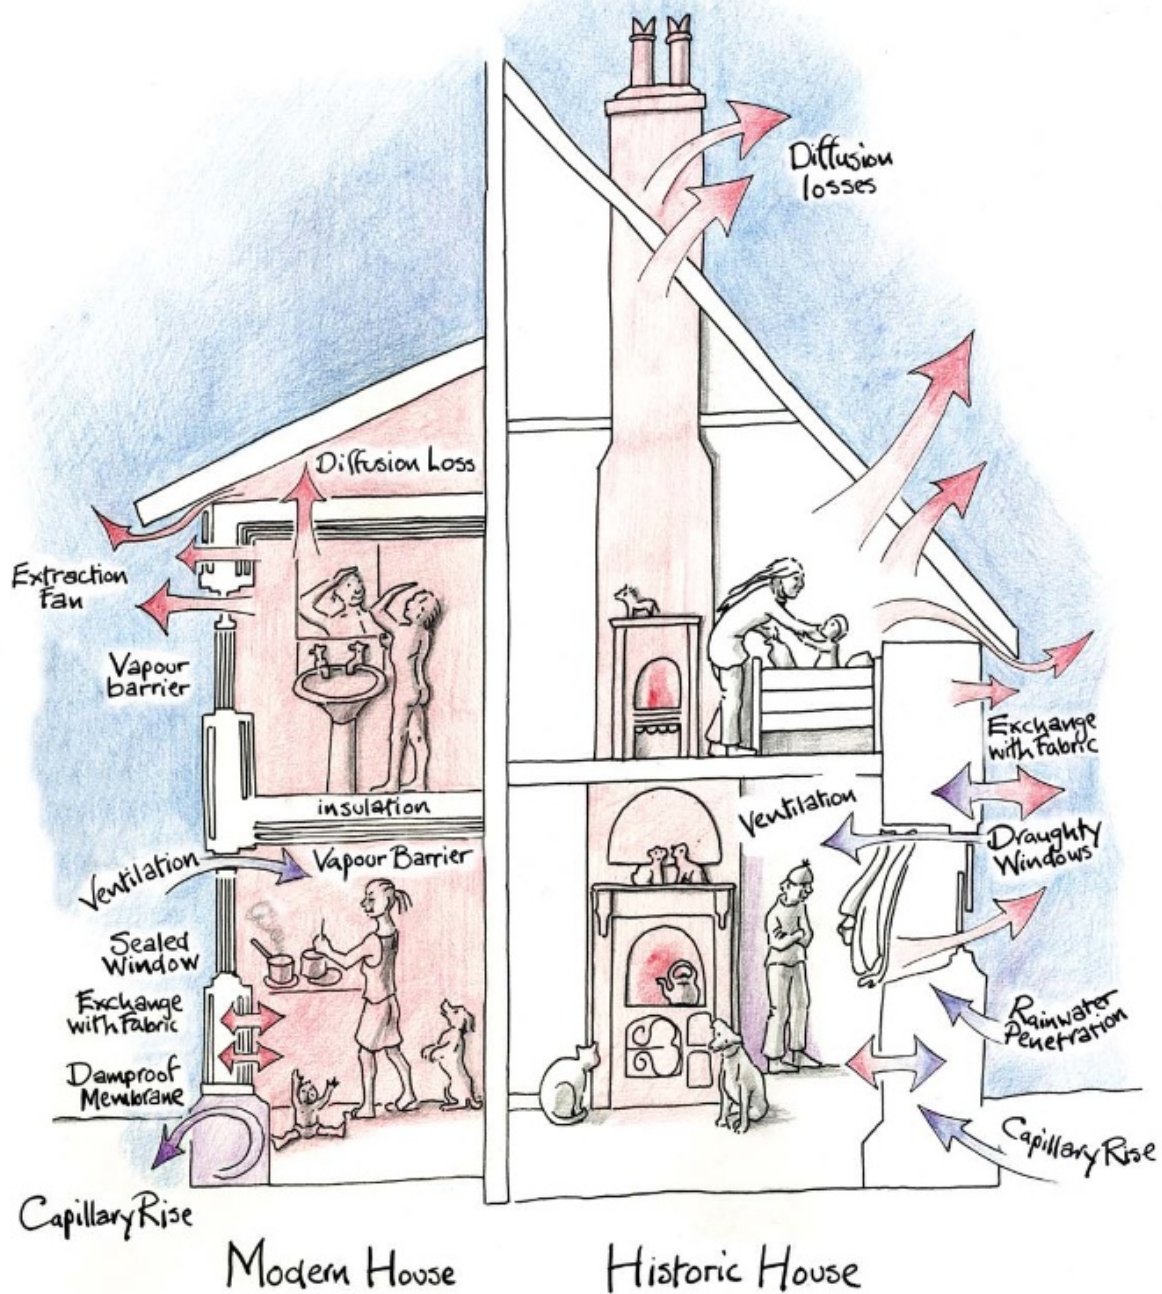 Diffusion
losses
Diffusion Loss
Extraction
Fan
Vapour
barrier
insulation
Ventilation
Vapour Barrier
Sealed
Window
Exchange
with Fabric
Damproof
Membrane
Capillary Rise
Exchange
with Fabric
Ventilation
Draughty
Windows
Rainwater
Penetration
Capillary Rise
Modern House
Historic House